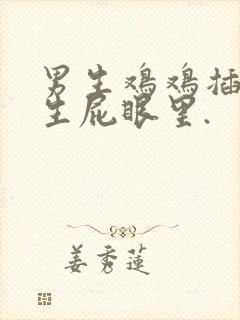 男生鸡鸡插
生屁眼里.
姜秀莲